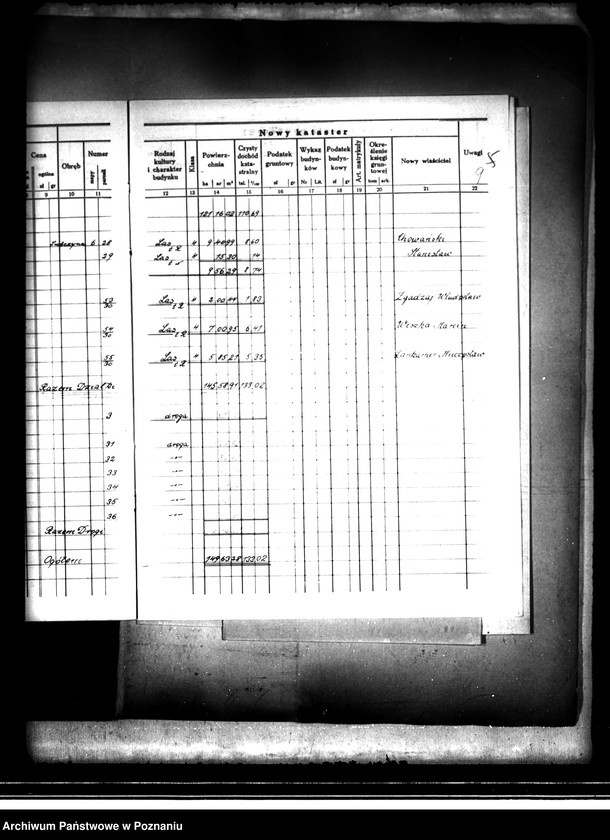 Nowy kataster
Cena
ogólna
zł gr
Obręb
Numer
mapy parceli
Rodzaj kultury i charakter budynku
Klasa
Powierzchnia
ha ar m²
Czysty dochód katastralny
tal. 1/100
Podatek gruntowy
zł gr
Wykaz budynków
Nr Lit.
Podatek budynkowy
zł gr
Art. matrykuły
Określenie księgi gruntowej
tom ark.
Nowy właściciel
Uwagi
9 10 11 12 13 14 15 16 17 18 19 20 21 22
9
5
121 16 02 110,69
6 28 4 9 40 99 8,60 Chowański
29 4 15 30 14 Stanisław
9 56 29 8,74
53/30 4 2 00 44 1,83
54/30 4 7 00 95 6,41 Marcin
55/30 4 5 85 21 5,35
Razem Działki 145,58 91 133,02
3 droga
31 droga
32 -"-
33 -"-
34 -"-
35 -"-
36 -"-
Razem Drogi
Ogółem 149 63 28 133,02
Archiwum Państwowe w Poznaniu